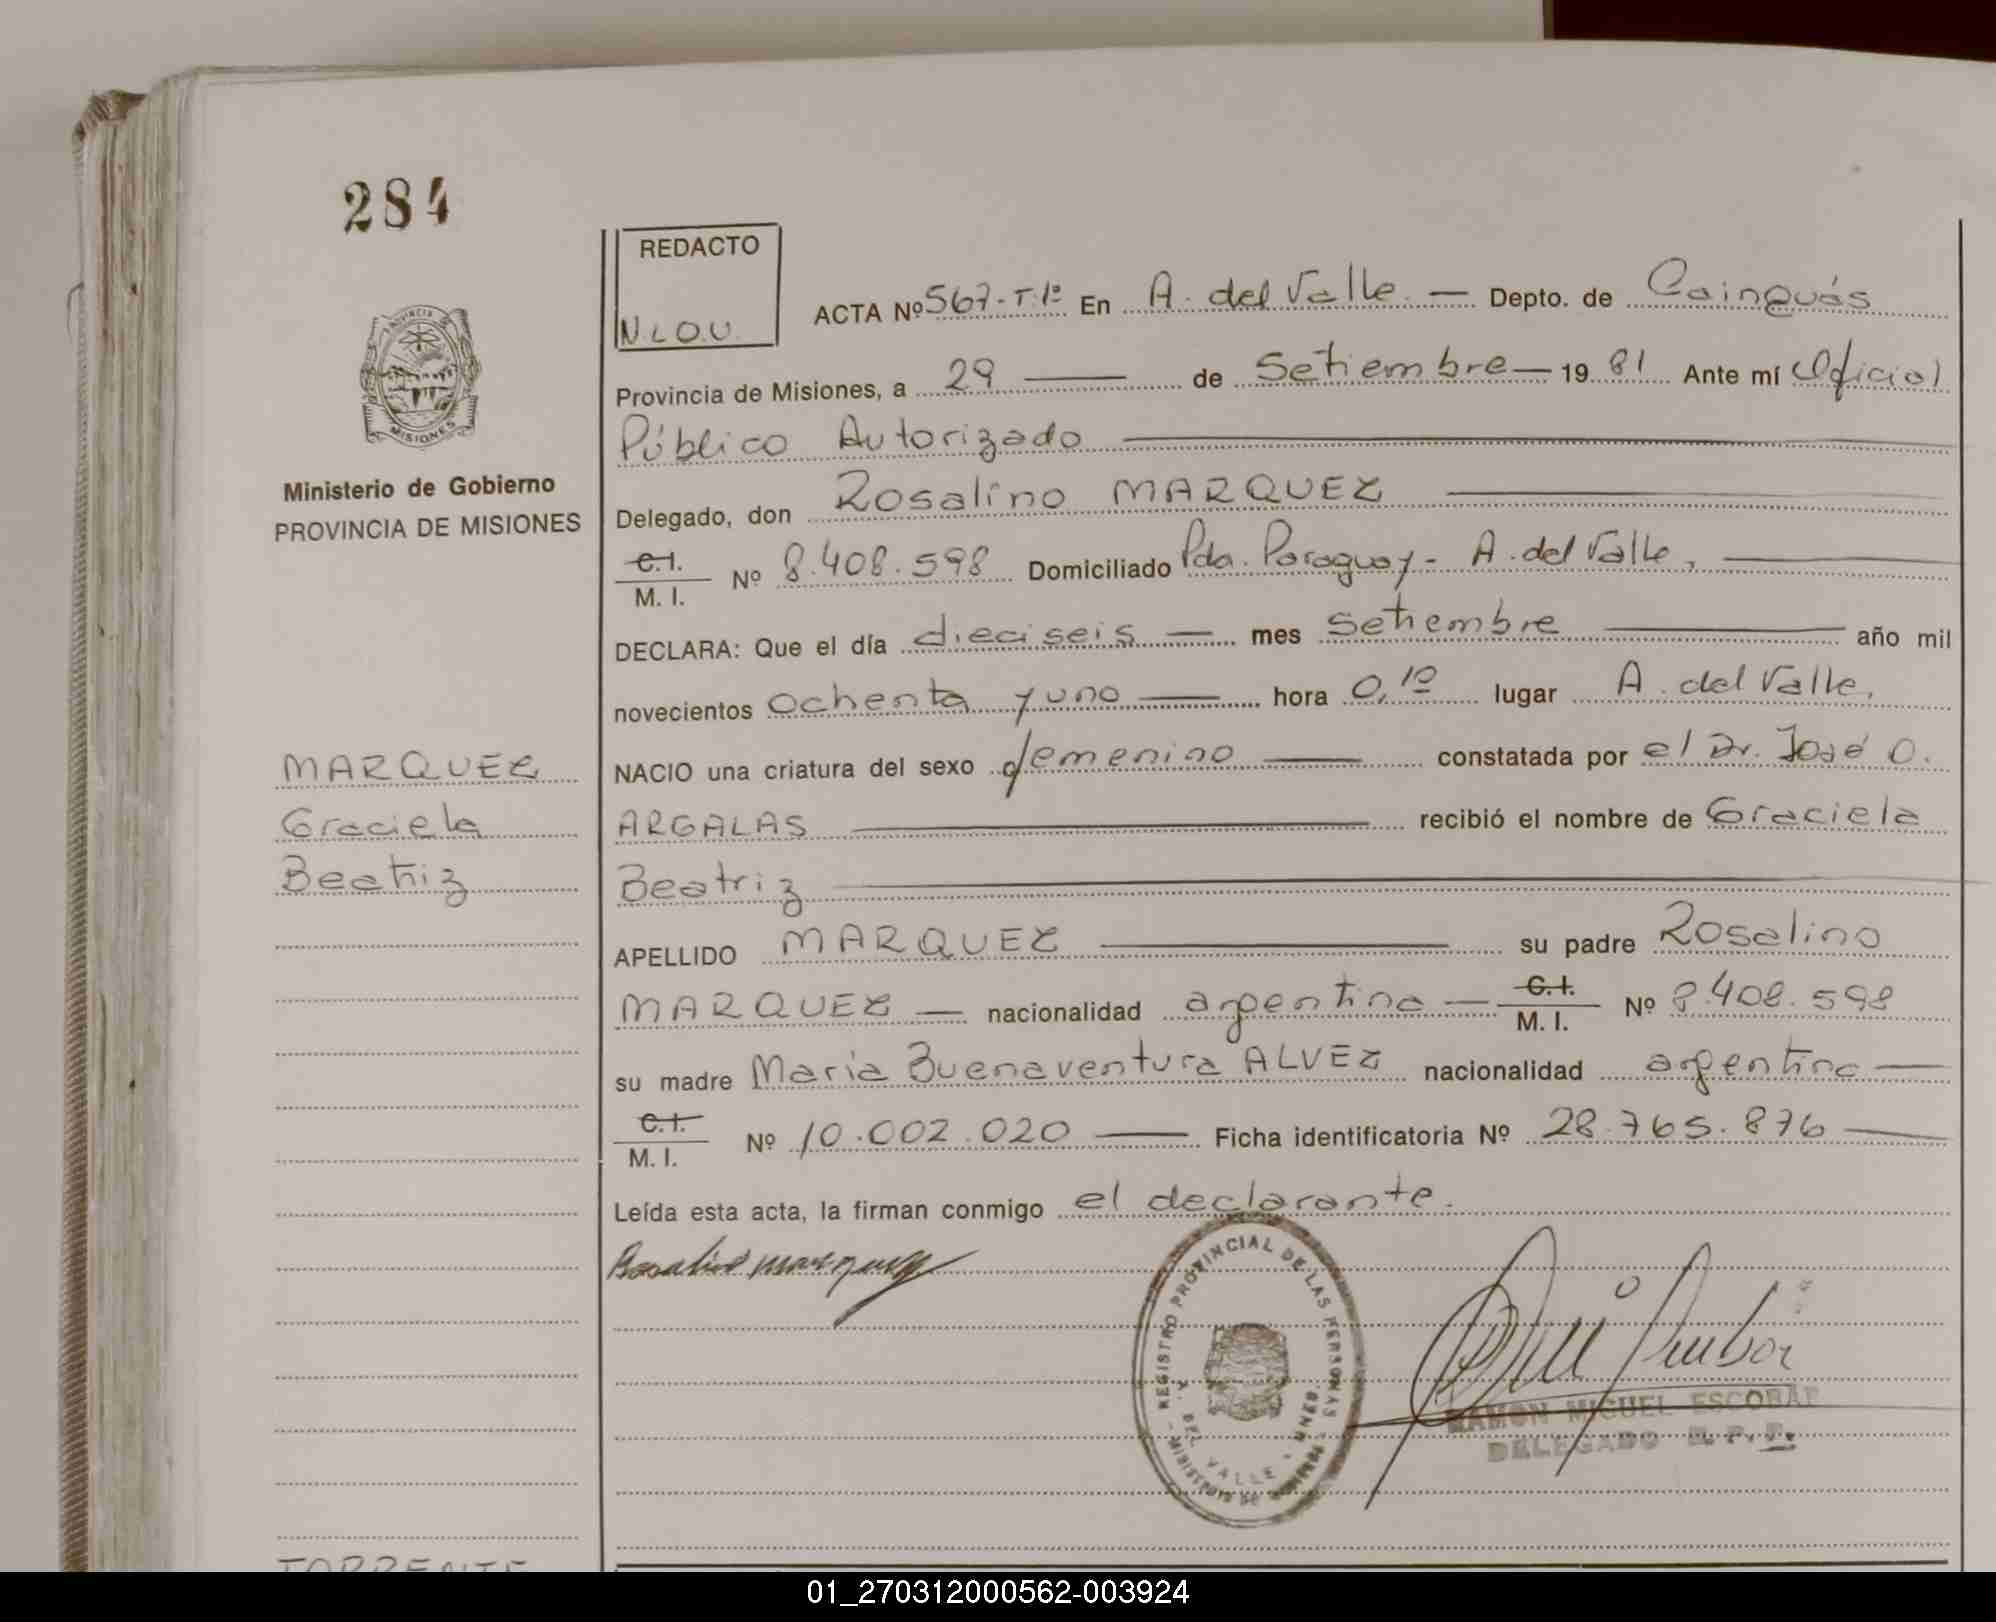 284
REDACTO
N.L.O.U.
ACTA Nº 567-T.1º En A. del Valle.— Depto. de Cainguás
Provincia de Misiones, a 29 — de Setiembre — 19 81 Ante mí Oficial
Público Autorizado
Ministerio de Gobierno
PROVINCIA DE MISIONES
Delegado, don Rosalino MARQUEZ
C.I.
M. I.
Nº 8.408.598 Domiciliado Pda. Paraguay - A. del Valle,
DECLARA: Que el día dieciseis — mes setiembre — año mil
novecientos ochenta y uno — hora 0,10 lugar A. del Valle,
MARQUEZ
Graciela
Beatriz
NACIO una criatura del sexo femenino — constatada por el Dr. José O.
ARGALAS — recibió el nombre de Graciela
Beatriz
APELLIDO MARQUEZ — su padre Rosalino
MARQUEZ — nacionalidad argentina — C.I. M. I. Nº 8.408.598
su madre Maria Buenaventura ALVEZ nacionalidad argentina —
C.I.
M. I.
Nº 10.002.020 — Ficha identificatoria Nº 28.765.876 —
Leída esta acta, la firman conmigo el declarante.
Rosalino marquez
REGISTRO PROVINCIAL DE LAS PERSONAS
A. DEL VALLE
RAMON MIGUEL ESCOBAR
DELEGADO R. P. P.
TORRENTE
01_270312000562-003924